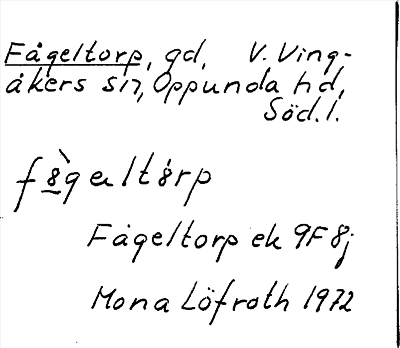 Fågeltorp, gd, V. Ving-
åkers sn, Oppunda hd,
Söd. l.
fògeltórp
Fågeltorp ek 9F 8j
Mona Löfroth 1972